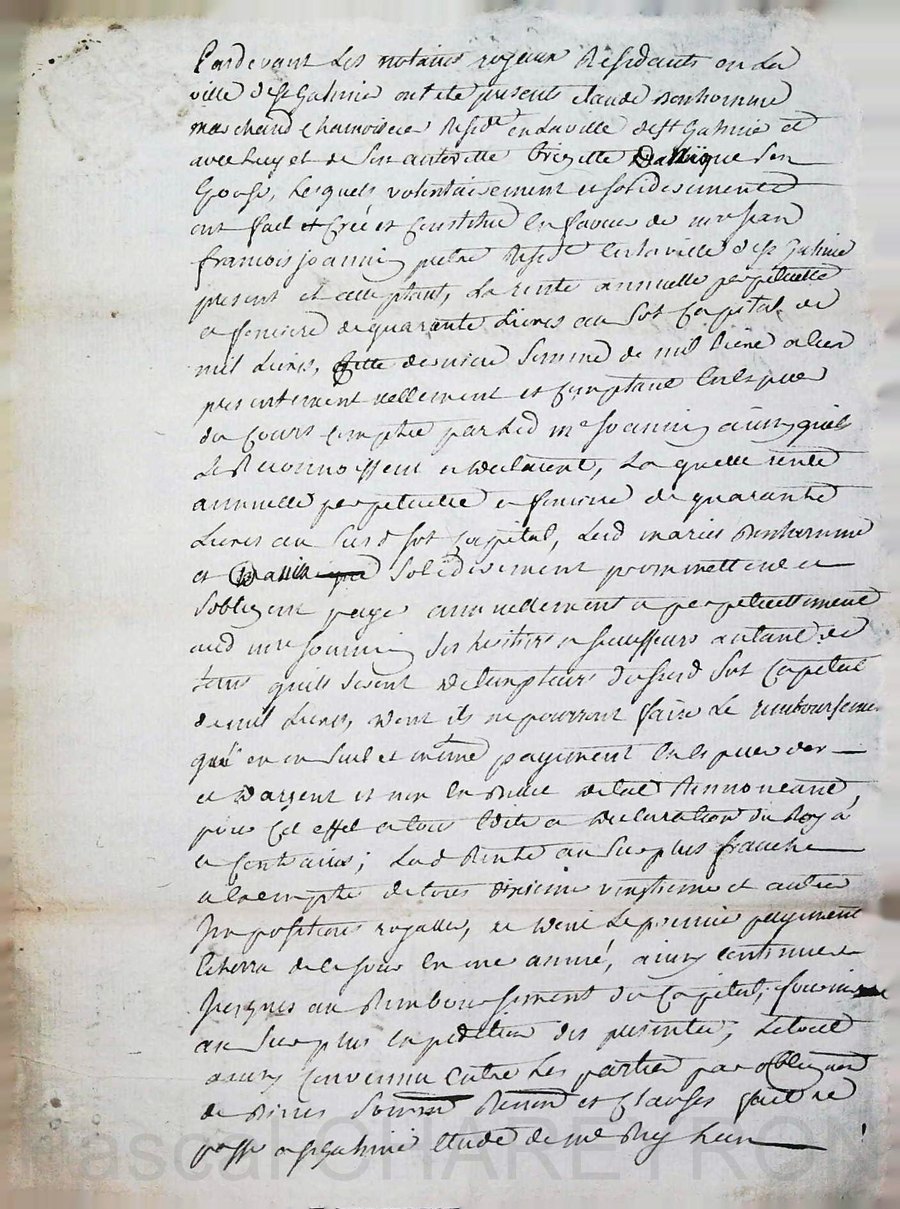 Pardevant Les notaires royaux Residants en La
ville de st Galmier ont ete presents claude Bonhomme
marchand chamoiseur Resid.t en La ville de st Galmier et
avec luy et de Son autorité Brigitte Dassique Son
Epouse, Lesquels volontairement et solidairement
ont fait et Créé et Constitué En faveur de mre jean
francois joannin pretre Resid.t En la ville de st Galmier
present et acceptant, La rente annuelle perpetuelle
et fonciere de quarante Livres au Sot Capital de
mil Livres, Cette derniere Somme de mil
presentement reellement et Comptant En Especes
du Cours Comptée par Led mre Joannin ainsy quils
Le Reconnoissent et declarent, La quelle rente
annuelle perpetuelle et fonciere de quarante
Livres au Susd Sot Capital, Lesd mariés Bonhomme
et Dassique Solidairement promettent et
Sobligent payer annuellement et perpetuellement
aud mre Joannin Ses heritiers et Successeurs autant de
tems quils Seront detempteurs du Susd Sot Capital
de mil Livres, dont ils ne pourront faire Le remboursement
quà en un Seul et même payement En Especes dor
et dargent et non En Billet Renonceant
pour Cet effet a tous Edits et declaration du Roy à
ce Contraires; Lad Rente au Surplus franche
et exempte de tous dixieme vingtieme et autres
Impositions royalles, et dont Le premier payement
Echerra de ce jour En une année, ainsy Continuer
Jusques au Remboursement du Capital, fournir
au Surplus Expedition des presentes, Le tout
ainsy Convenu Entre Les parties par obligation
de Biens Soumn Renon et Clauses fait et
passé a st Galmier etude de me
Pascal CHAREYRON